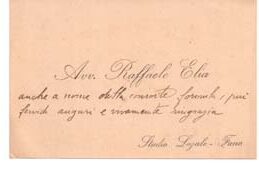 Avv. Raffaele Elia
anche a nome della consorte formula, più
fervidi auguri e vivamente ringrazia
Studio Legale - Fano